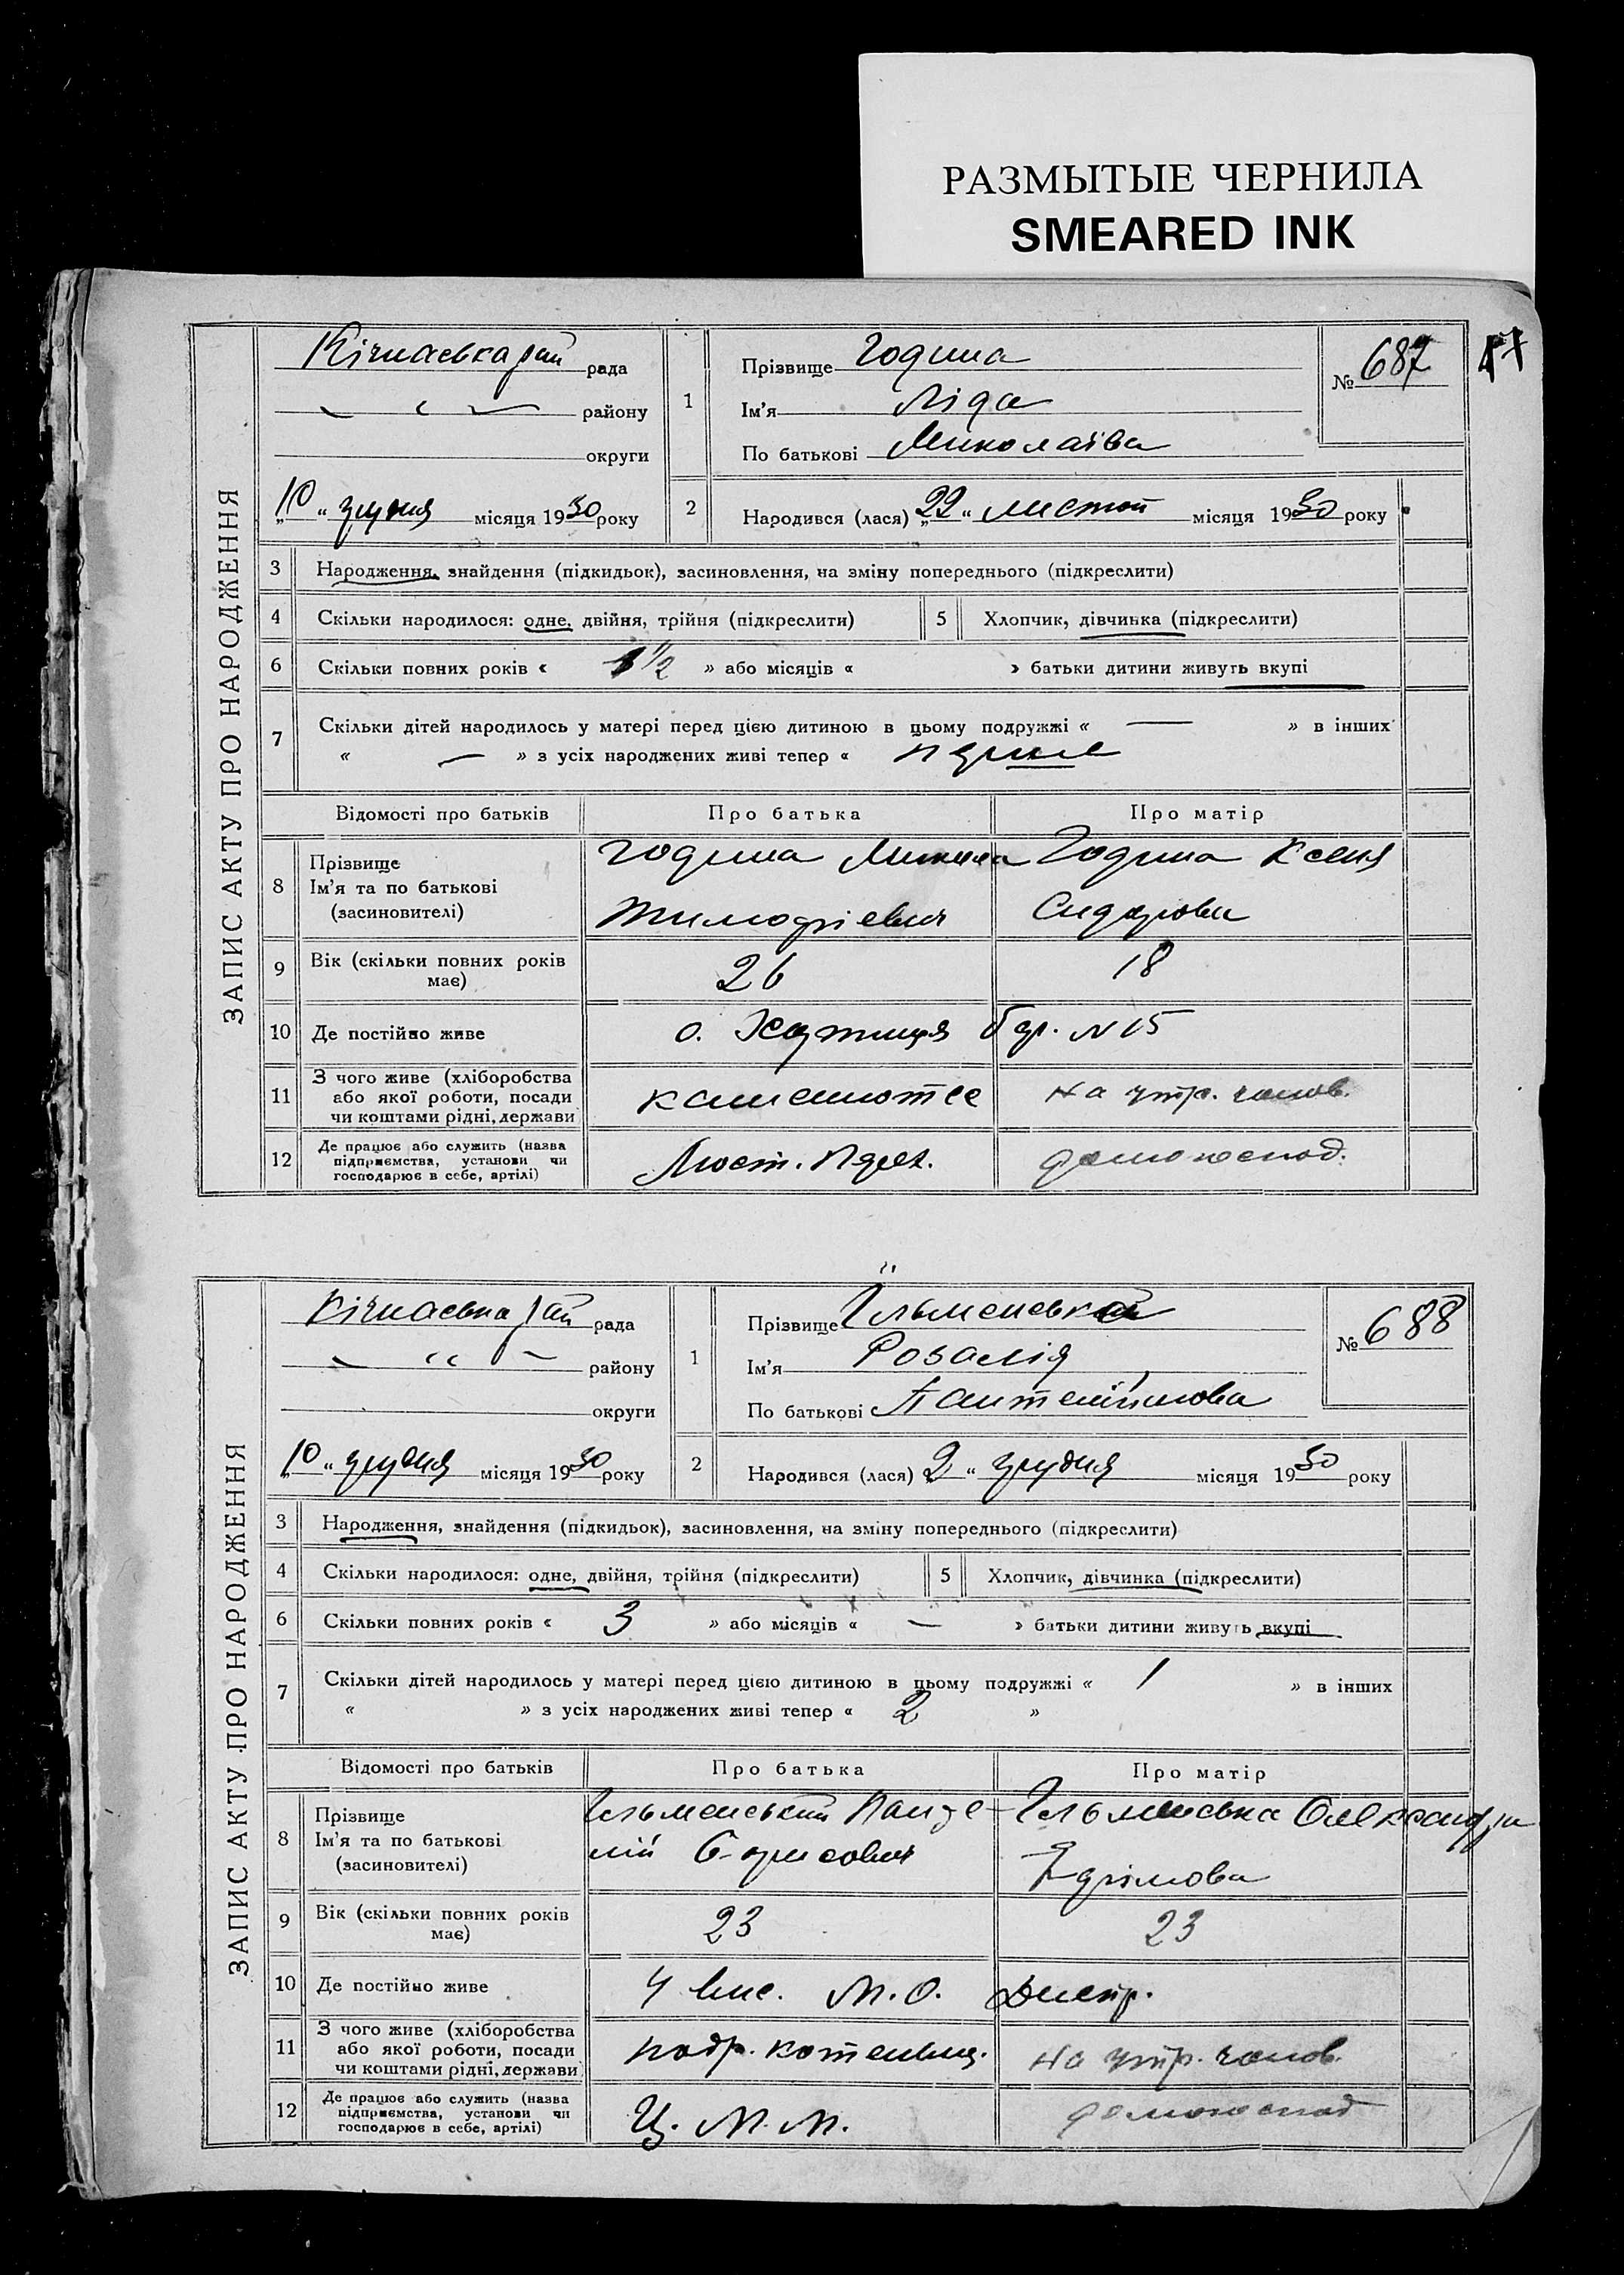 РАЗМЫТЫЕ ЧЕРНИЛА
SMEARED INK
ЗАПИС АКТУ ПРО НАРОДЖЕННЯ
Кічкаська рай рада
— " — району
округи
„10“ грудня місяця 1930 року
1
Прізвище Година
Ім’я Ліда
По батькові Миколаїва
№ 687
2
Народився (лася) „22“ листоп місяця 1930 року
3 Народження, знайдення (підкидьок), засиновлення, на зміну попереднього (підкреслити)
4 Скільки народилося: одне, двійня, трійня (підкреслити) 5 Хлопчик, дівчинка (підкреслити)
6 Скільки повних років « 1½ » або місяців « » батьки дитини живуть вкупі
7 Скільки дітей народилось у матері перед цією дитиною в цьому подружжі « — » в інших
« — » з усіх народжених живі тепер «
Відомості про батьків Про батька Про матір
8 Прізвище
Ім’я та по батькові
(засиновителі)
Година Микола
Тимофієвич
Година Ксеня
Сидорова
9 Вік (скільки повних років має) 26 18
10 Де постійно живе о. Хортиця бар. № 15
11 З чого живе (хліборобства або якої роботи, посади чи коштами рідні, держави
каменотес на утр. чолов.
12 Де працює або служить (назва підприємства, установи чи господарює в себе, артілі)
Мост. домогоспод.
ЗАПИС АКТУ ПРО НАРОДЖЕННЯ
Кічкаська рай рада
— " — району
округи
„10“ грудня місяця 1930 року
1
Прізвище Ільменська
Ім’я Розалія
По батькові Пантеліймова
№ 688
2
Народився (лася) „2“ грудня місяця 1930 року
3 Народження, знайдення (підкидьок), засиновлення, на зміну попереднього (підкреслити)
4 Скільки народилося: одне, двійня, трійня (підкреслити) 5 Хлопчик, дівчинка (підкреслити)
6 Скільки повних років « 3 » або місяців « — » батьки дитини живуть вкупі
7 Скільки дітей народилось у матері перед цією дитиною в цьому подружжі « 1 » в інших
« » з усіх народжених живі тепер « 2 »
Відомості про батьків Про батька Про матір
8 Прізвище
Ім’я та по батькові
(засиновителі)
Ільменський Панте-
лій
Ільменська Олександра
Єфімова
9 Вік (скільки повних років має) 23 23
10 Де постійно живе 4 вис. М.О. Днепр.
11 З чого живе (хліборобства або якої роботи, посади чи коштами рідні, держави
на утр. чолов.
12 Де працює або служить (назва підприємства, установи чи господарює в себе, артілі)
Ц. М. М. домогоспод